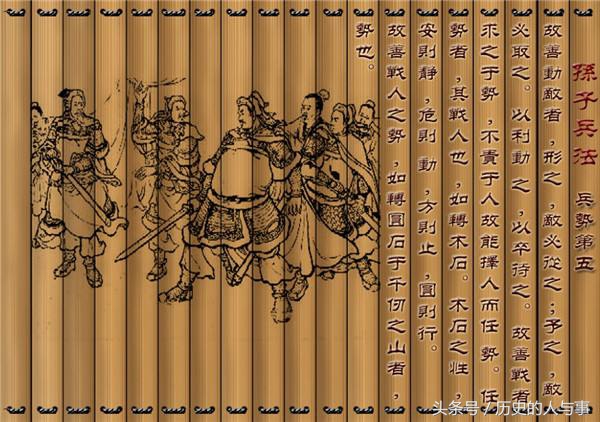 孫子兵法 兵勢第五
故善動敵者，形之，敵必從之；予之，敵
必取之。以利動之，以卒待之。故善戰者
求之于勢，不責于人故能擇人而任勢。任
勢者，其戰人也，如轉木石。木石之性，
安則靜，危則動，方則止，圓則行。
故善戰人之勢，如轉圓石于千仞之山者，
勢也。
头条号 / 历史的人与事